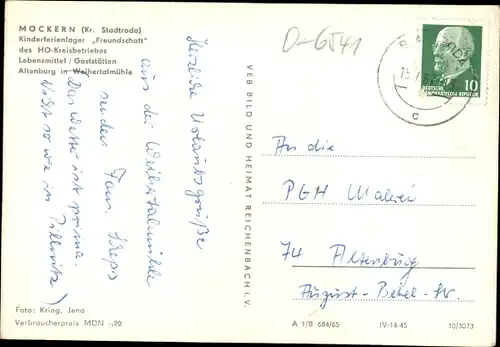 MÖCKERN (Kr. Stadtroda)
Kinderferienlager „Freundschaft"
des HO-Kreisbetriebes
Lebensmittel / Gaststätten
Altenburg in Weihertalmühle
Herzliche Urlaubsgrüße
aus der Weihertalmühle
senden Fam.
Das Wetter ist prima.
Nicht so wie in Pillnitz
Foto: Krieg, Jena
Verbraucherpreis MDN -,20
VEB BILD UND HEIMAT REICHENBACH i. V.
D-6541
10
DEUTSCHE
DEMOKRATISCHE REPUBLIK
c
An die
PGH Malerei
74 Altenburg
August-Bebel-Str.
A 1/B 684/65
IV-14-45
10/3073